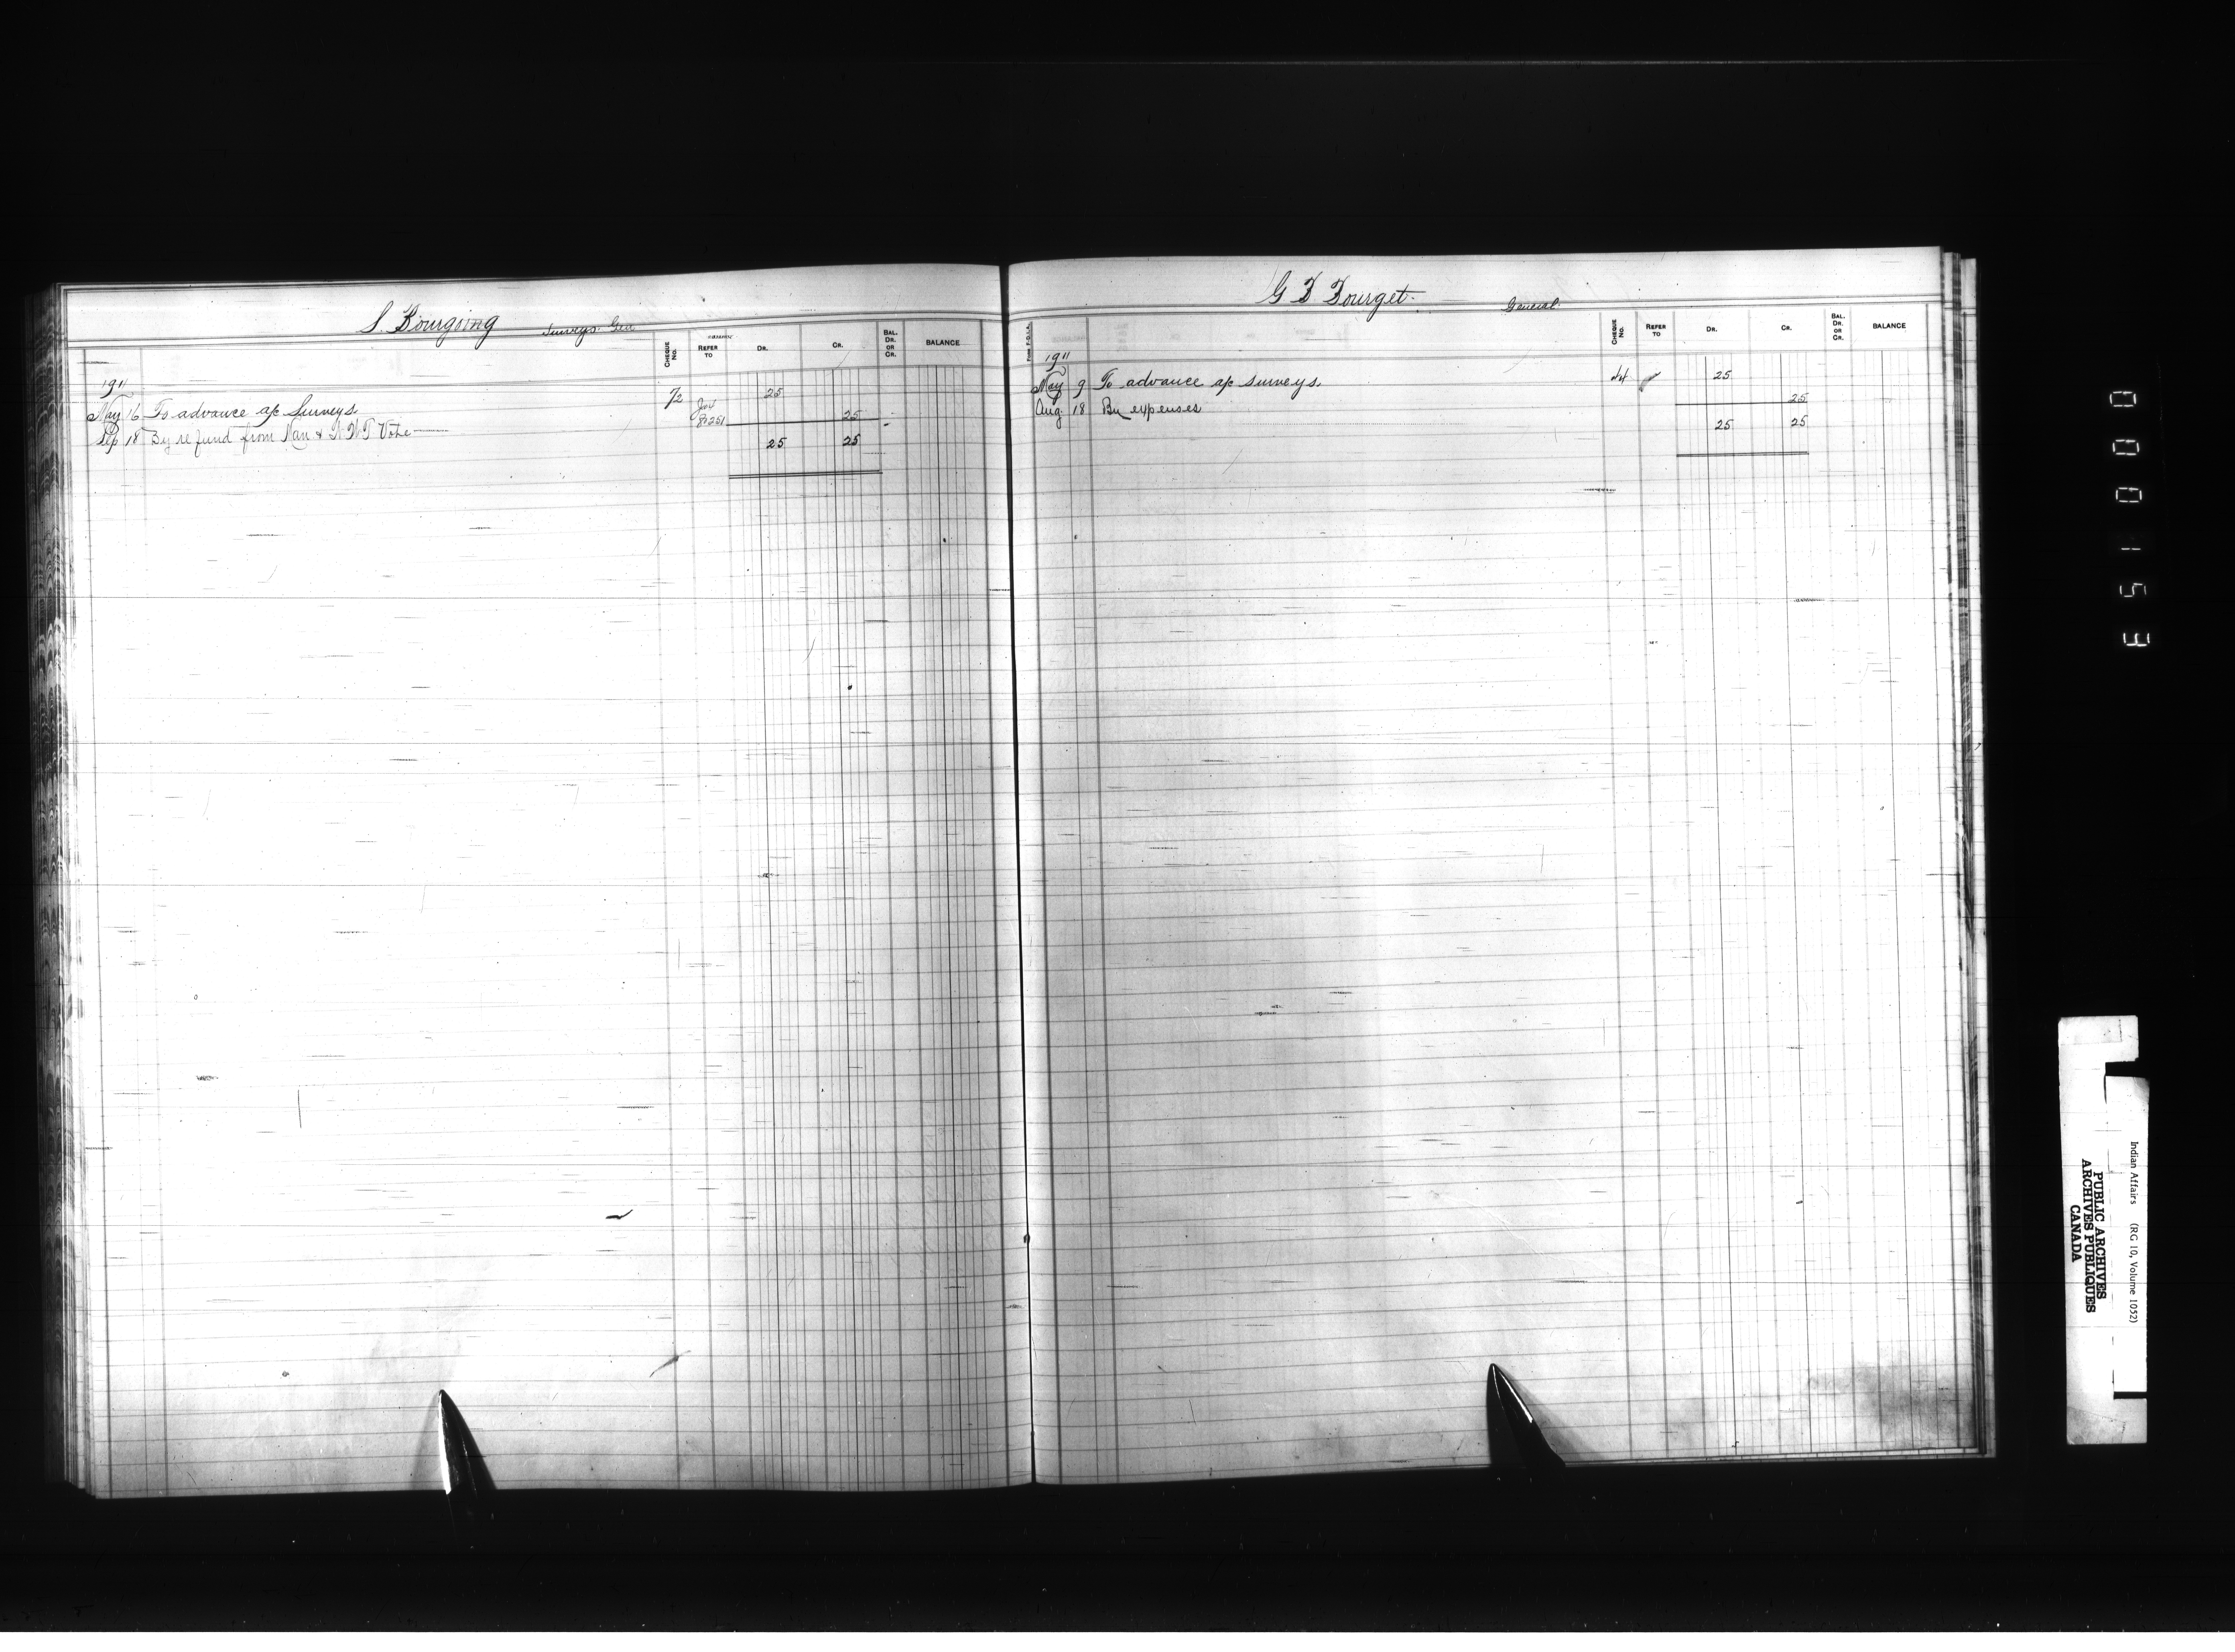 S. Bourgoing Surveys Gen
CHEQUE No. REFER TO DR. CR. BAL. DR. OR CR. BALANCE
1911
May 16 To advance a/c Surveys 72 25
Sep 18 By refund from Man & N.W.T Vote 25
25 25
G F Fourget. General
CHEQUE No. REFER TO DR. CR. BAL. DR. OR CR. BALANCE
1911
May 9 To advance a/c surveys. 44 25
Aug. 18 By expenses 25
25 25
0000153
Indian Affairs (RG 10, Volume 1052)
PUBLIC ARCHIVES
ARCHIVES PUBLIQUES
CANADA